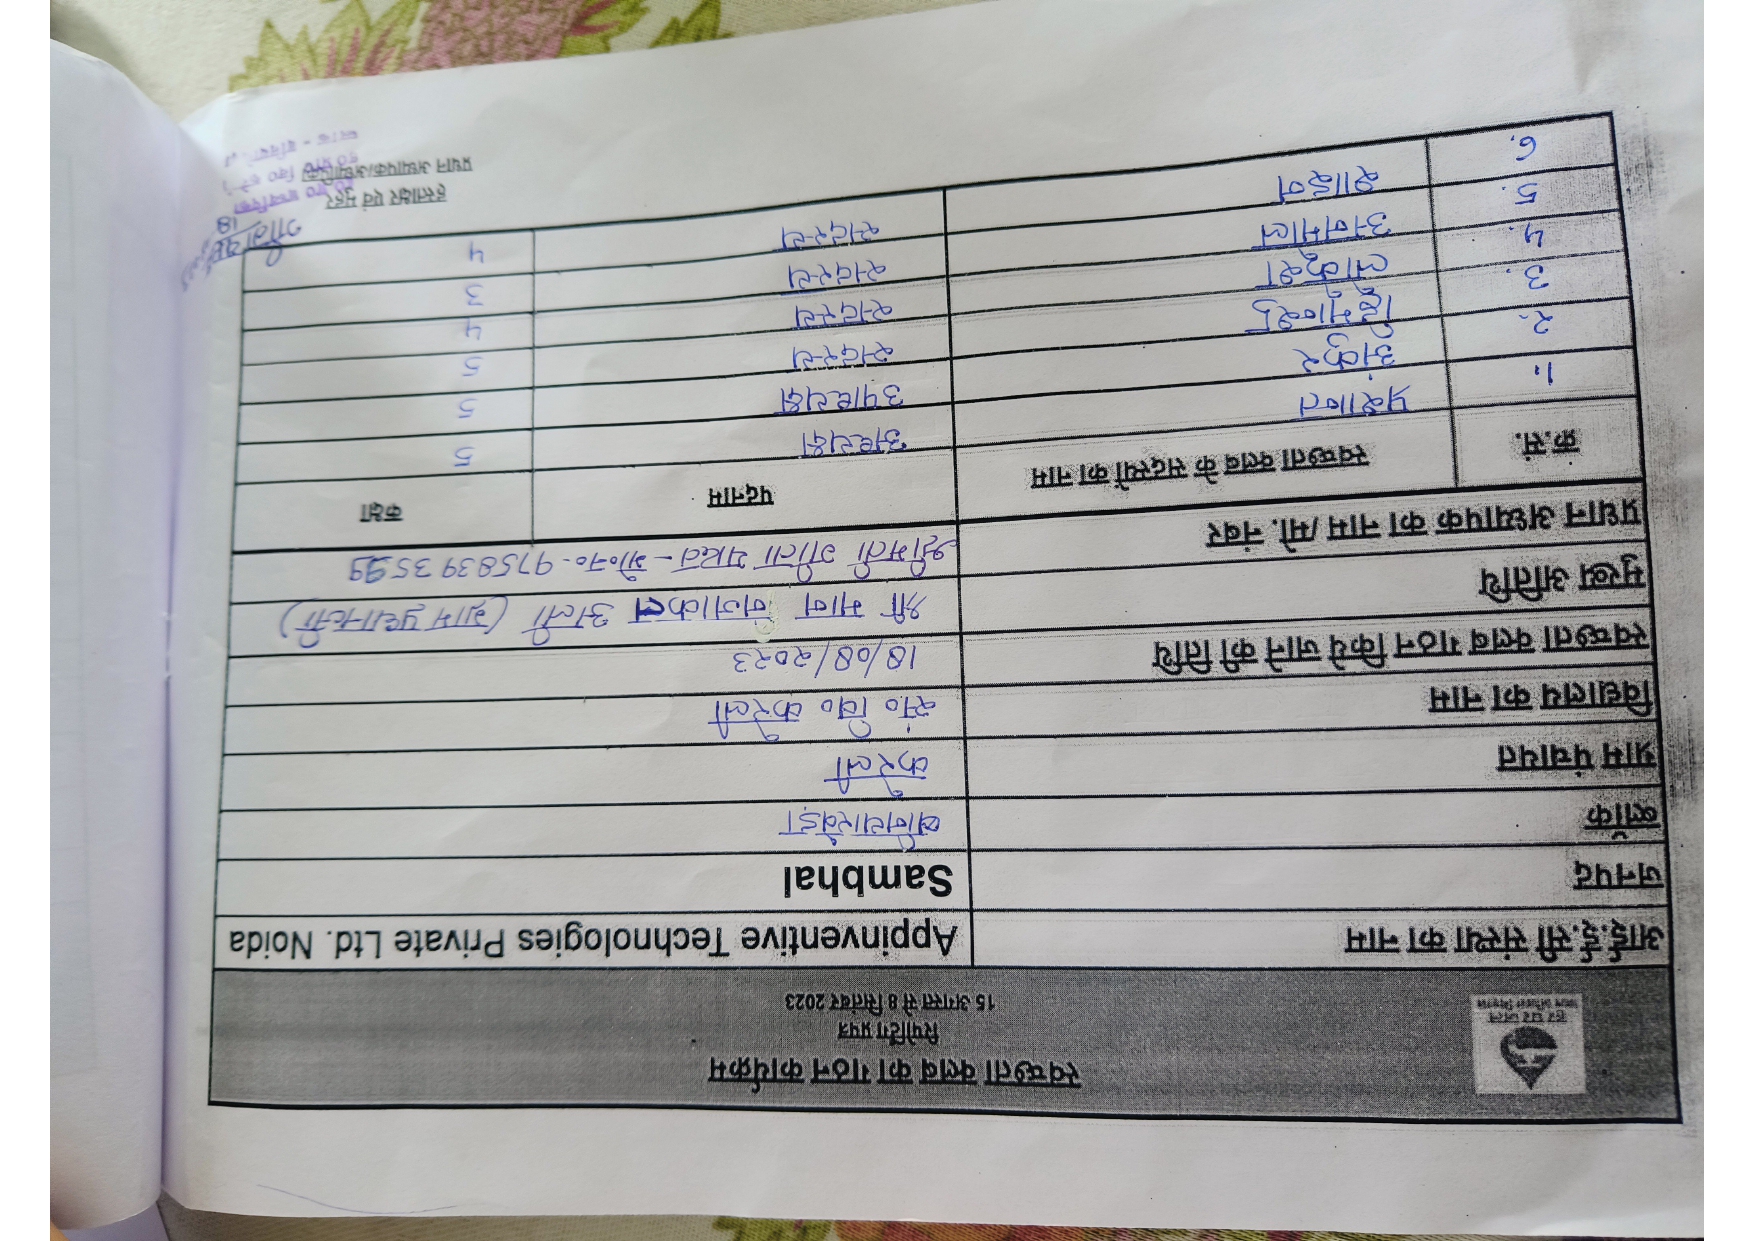 हर घर जल
जल जीवन मिशन
स्वच्छता क्लब का गठन कार्यक्रम
रिपोर्टिंग प्रपत्र
15 अगस्त से 8 सितंबर 2023
आई.ई.सी संस्था का नाम Appinventive Technologies Private Ltd. Noida
जनपद Sambhal
ब्लॉक बनियाखेड़ा
ग्राम पंचायत करेली
विद्यालय का नाम सं० वि० करेली
स्वच्छता क्लब गठन किये जाने की तिथि 18/08/2023
मुख्य अतिथि श्री मान अली (ग्राम प्रधानली)
प्रधान अध्यापक का नाम /मो. नंबर श्रीमती गीता यादव - मो०न०- 9758393599
क्र.सं. स्वच्छता क्लब के सदस्यों का नाम पदनाम कक्षा
1. प्रशान्त अध्यक्ष 5
2. अंकुर उपाध्यक्ष 5
3. हिमान्शु सदस्य 5
4. लोकेश सदस्य 4
5. अनमोल सदस्य 3
6. शाइन सदस्य 4
हस्ताक्षर एवं मुहर
प्रधान अध्यापक/अध्यापिका